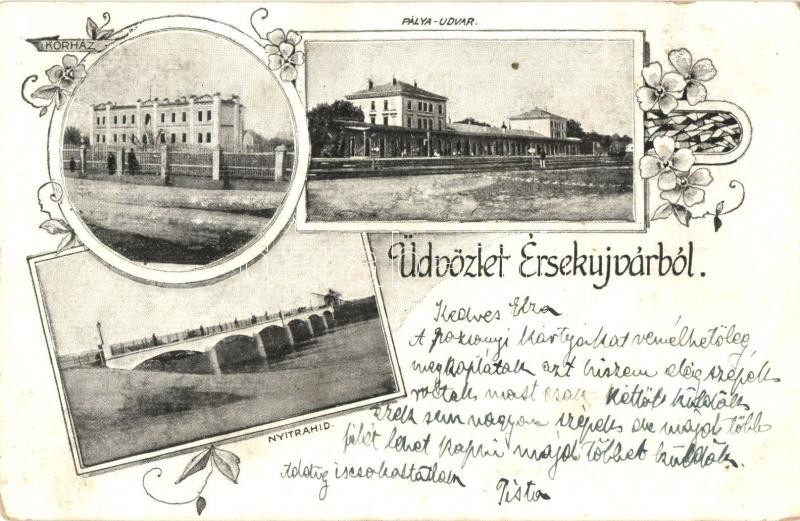 KÓRHÁZ
PÁLYA-UDVAR.
Üdvözlet Érsekujvárból.
NYITRAHID.
Kedves Elza
A pozsonyi kártyákat remélhetőleg
megkaptátok azt hiszem elég szépek
voltak most csak kettőt küldök
ezek sem nagyon szépek de majd több
félét lehet kapni majd többet küldök.
Addig is csokoltatlak
Pista